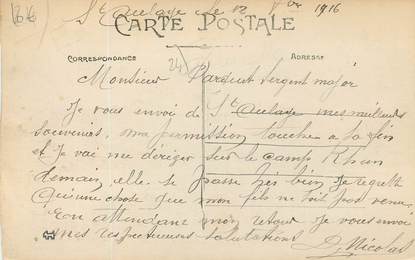 St Aulaye le 12 9bre 1916
CARTE POSTALE
CORRESPONDANCE
ADRESSE
24
Monsieur Parduit Sergent major
Je vous envoi de St Aulaye mes meilleurs
souvenirs, ma permission touche a sa fin
et je vai me dériger sur le camp
demain, elle se passe très bien, je regrette
qu'une chose que mon fils ne soit pas venu.
En attendant mon retour je vous envoi
mes respectueuses salutations D Nicolas